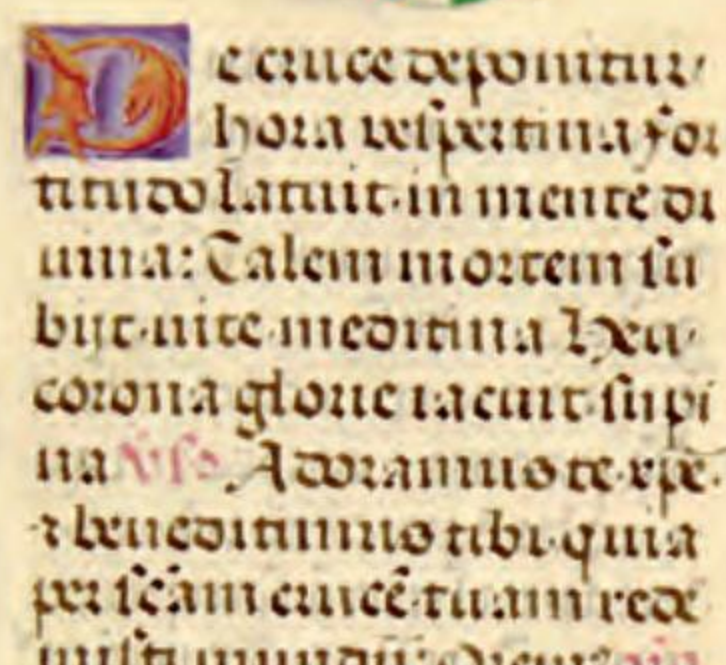 De cruce deponitur
hora vespertina for
titudo latuit in mente di
uina: Talem mortem su
bijt uite medicina heu
corona glorie iacuit supi
na Adoramus te xpe
⁊ benedicimus tibi quia
per scãm crucẽ tuam rede
misti mundũ: